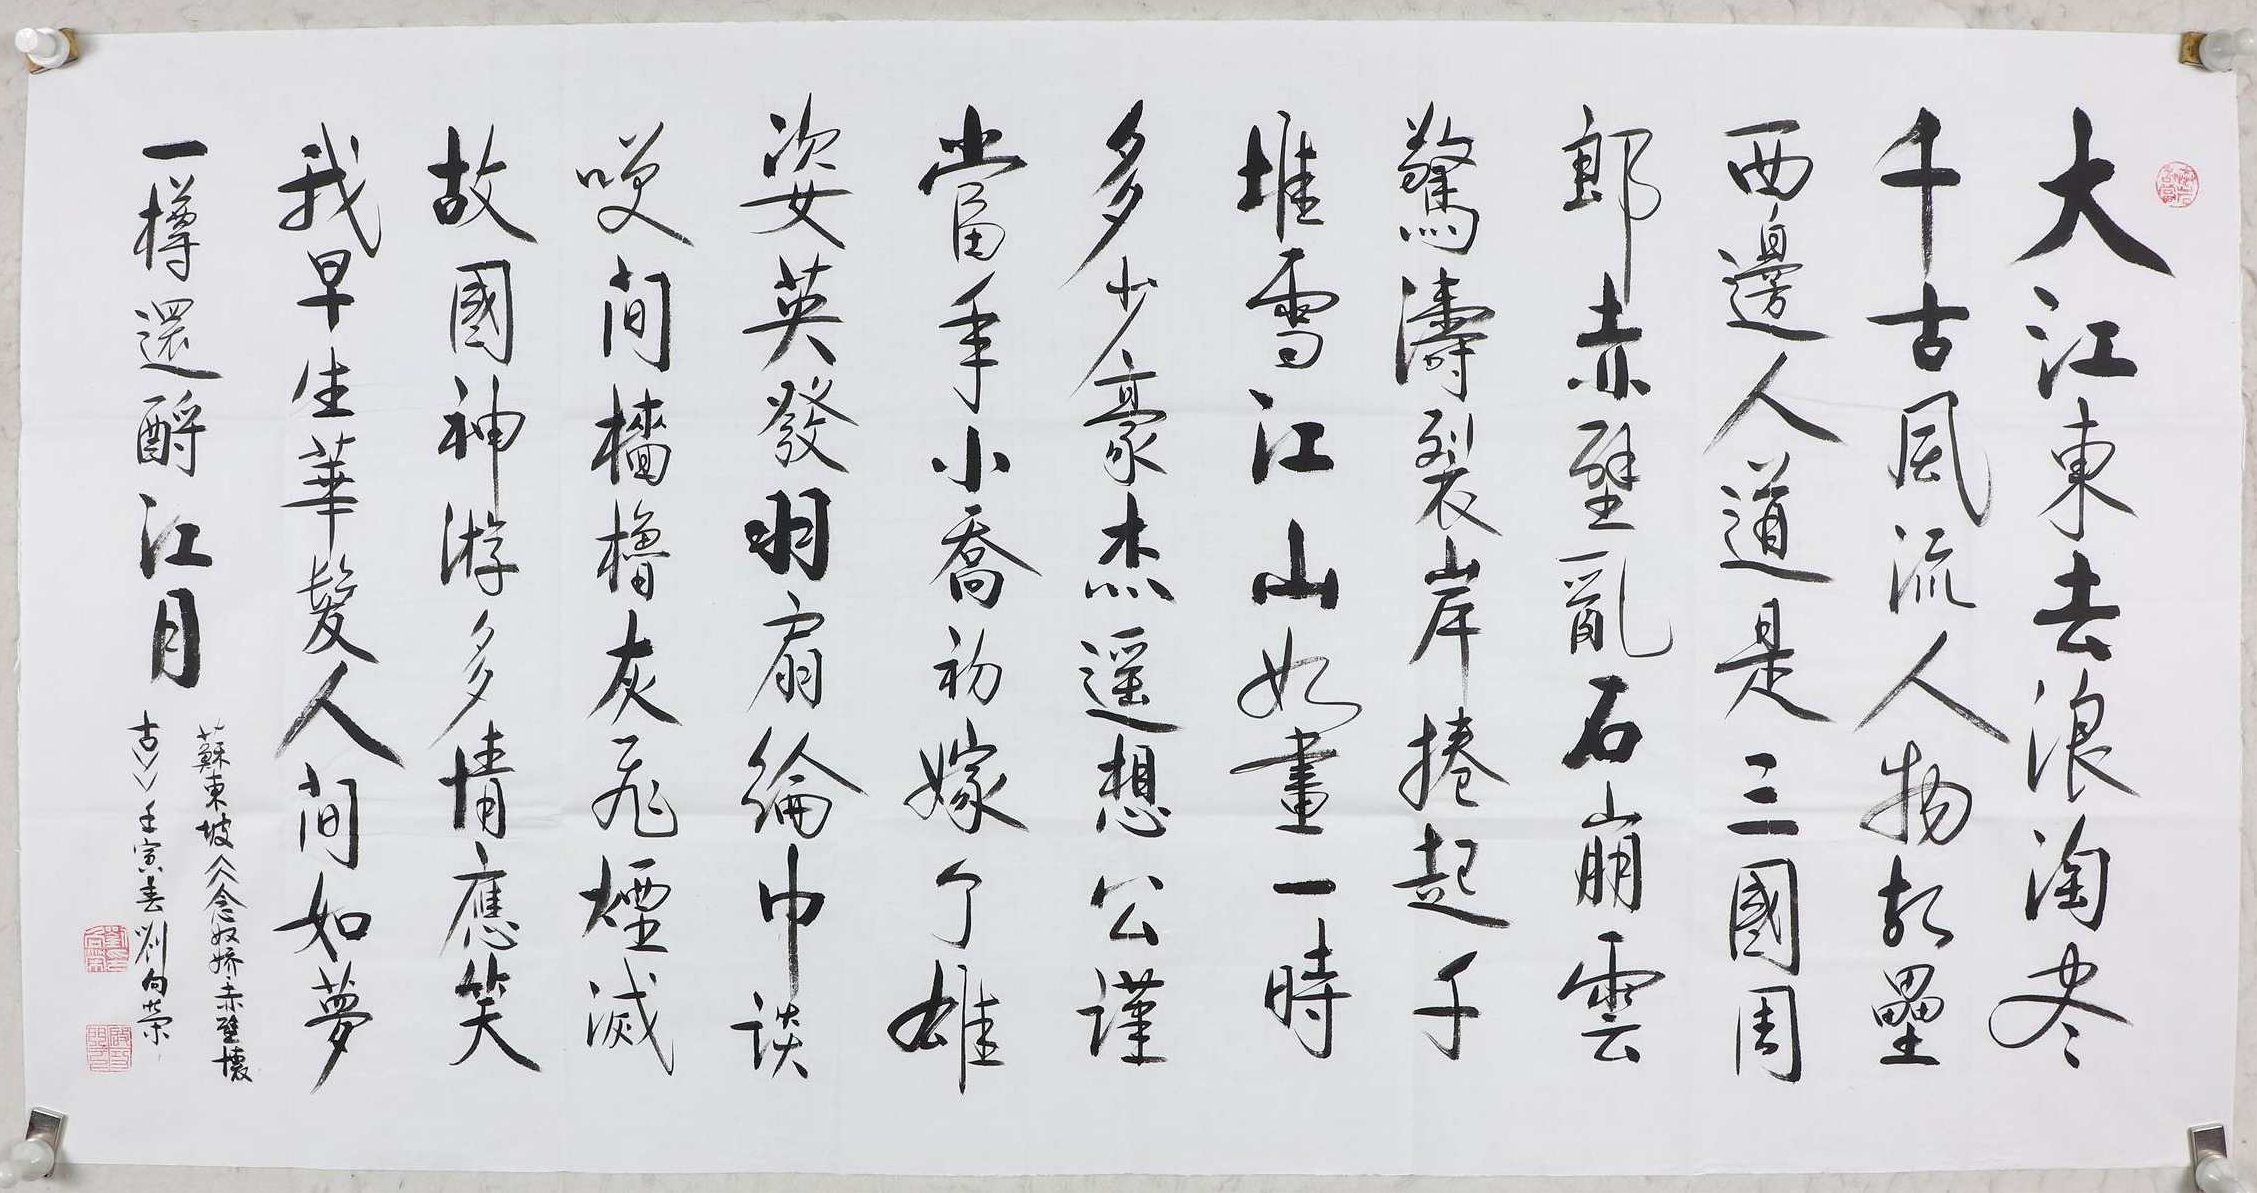 大江東去浪淘尽
千古風流人物故壘
西邊人道是三國周
郎赤壁亂石崩雲
驚濤裂岸捲起千
堆雪江山如畫一時
多少豪杰遥想公謹
當年小喬初嫁了雄
姿英發羽扇綸巾談
笑间檣櫓灰飛煙滅
故國神游多情應笑
我早生華髮人间如夢
一樽還酹江月
蘇東坡念奴娇赤壁懷
古壬寅春劉向荣